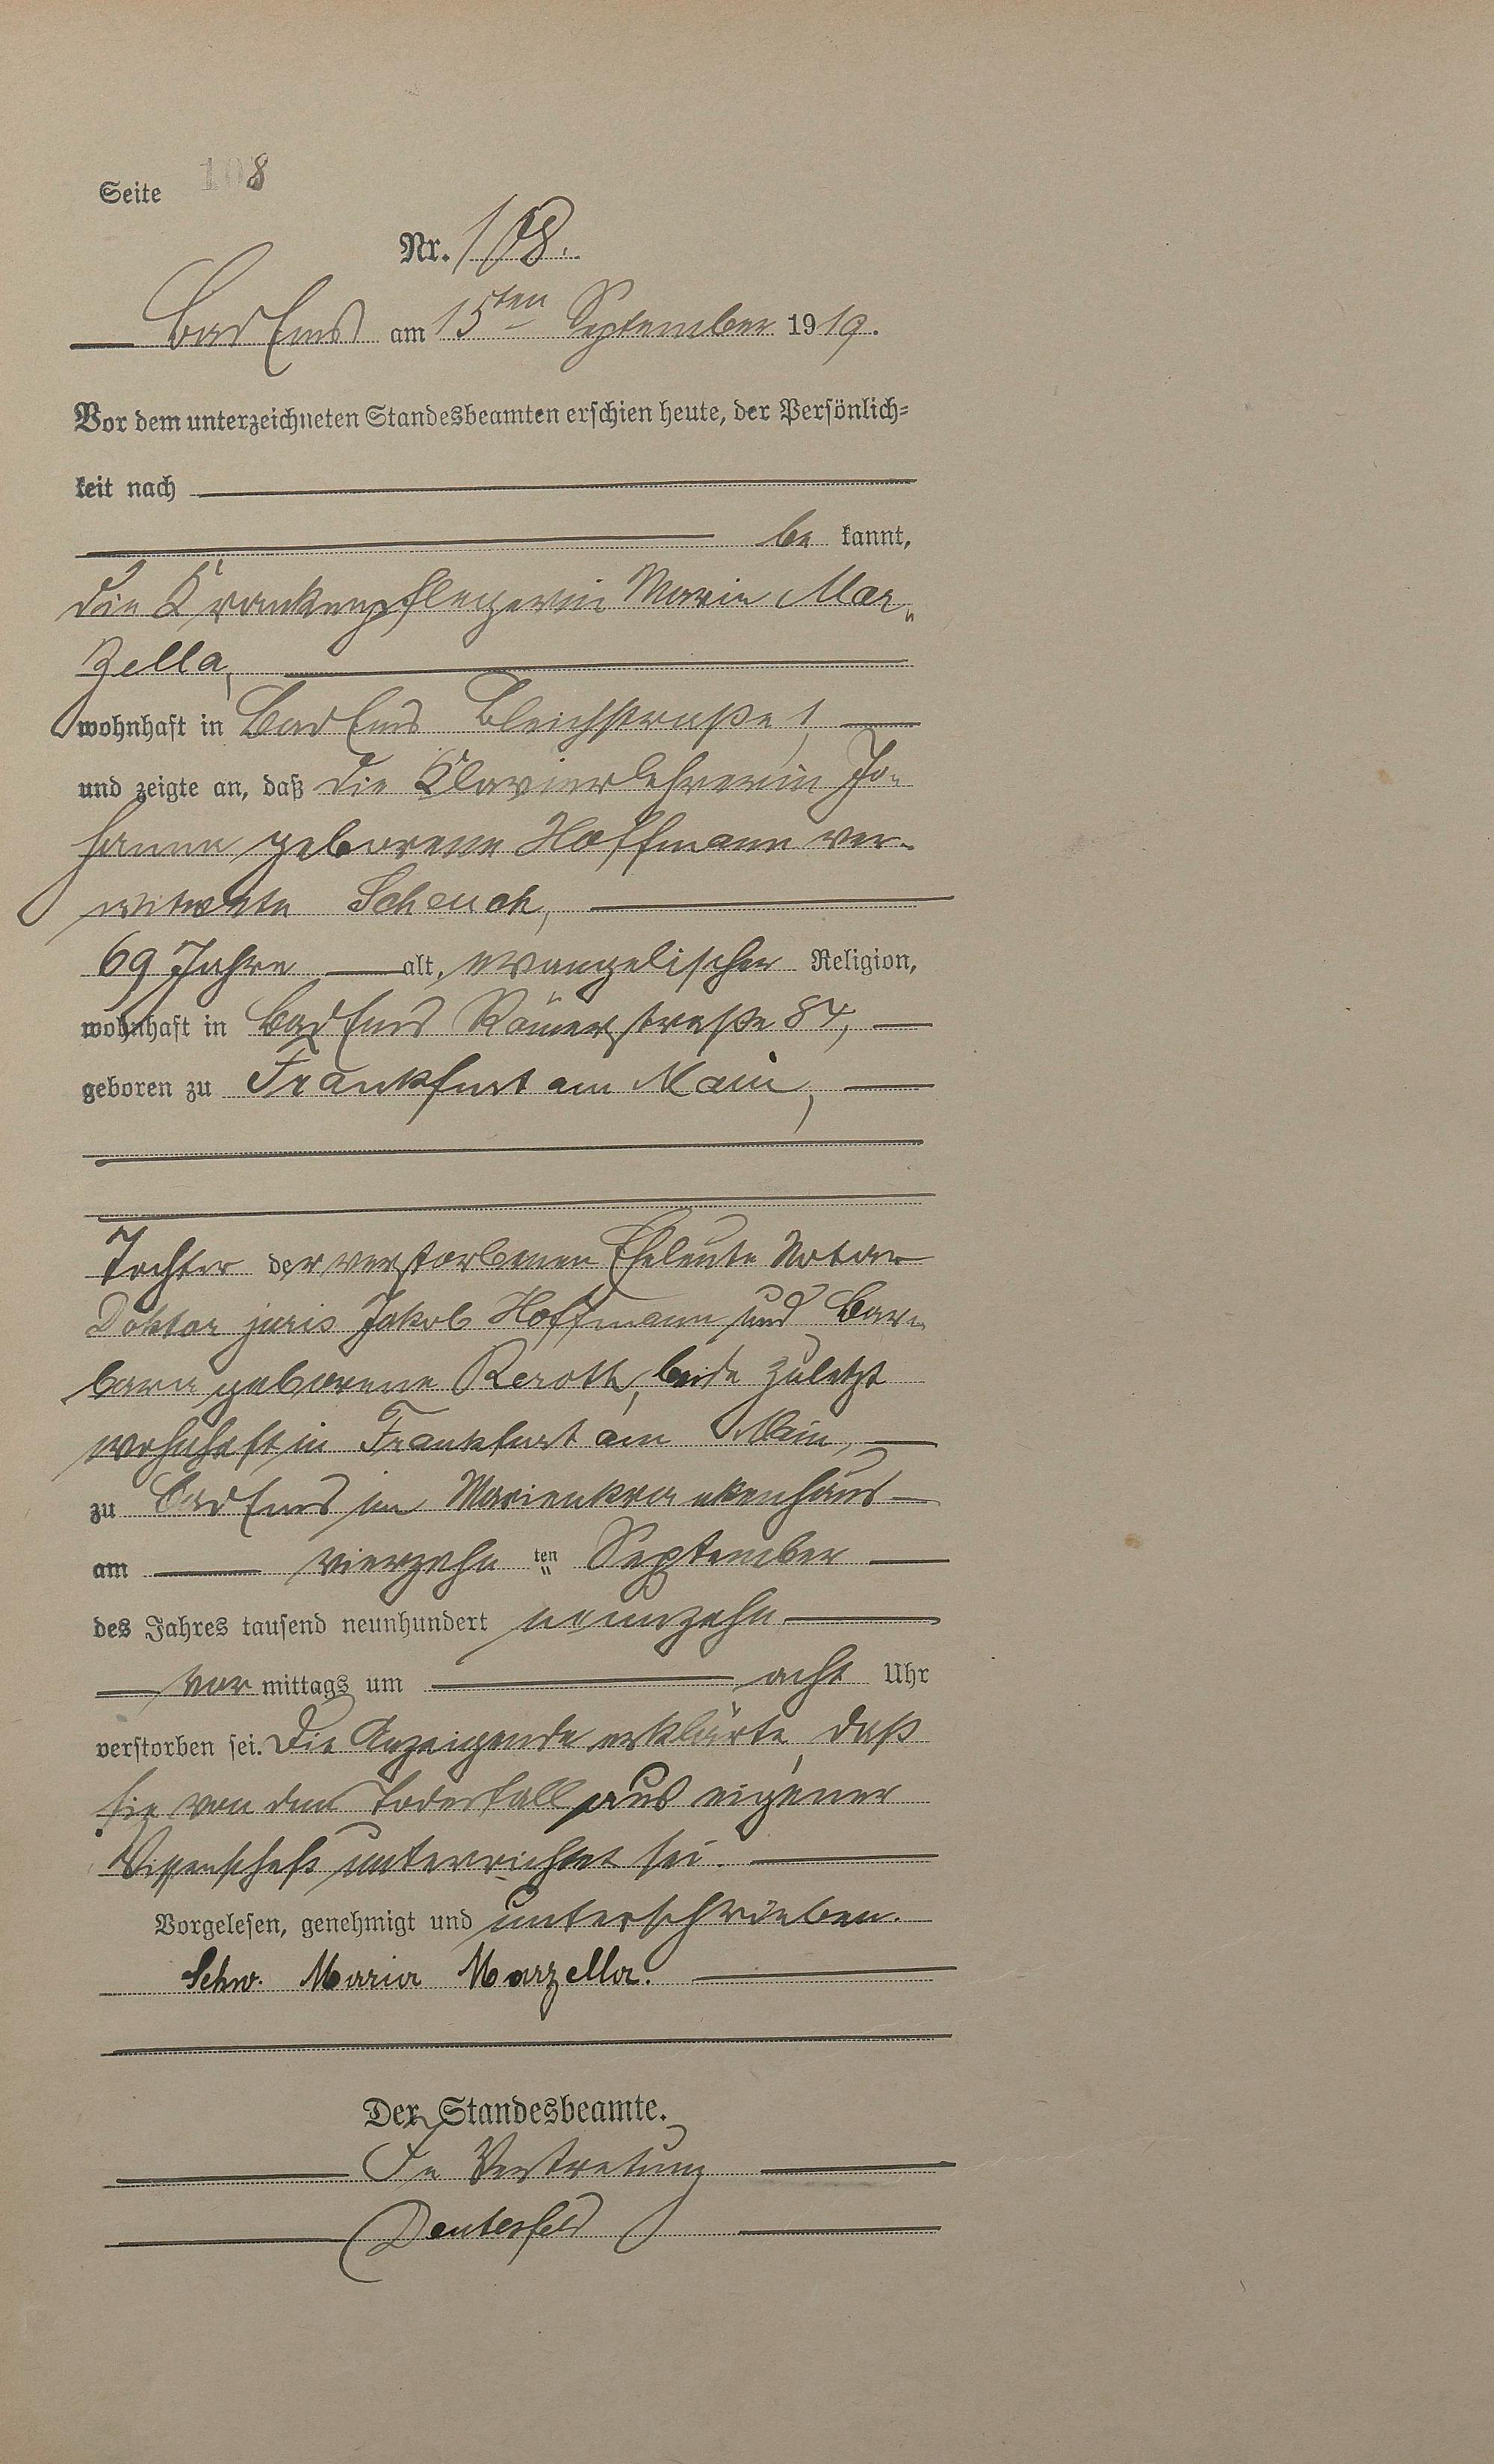 Seite 108
Nr. 108.
Bad Ems am 15ten September 1919.
Vor dem unterzeichneten Standesbeamten erschien heute, der Persönlich-
keit nach
be kannt,
die Krankenpflegerin Maria Mar-
zella,
wohnhaft in Bad Ems Bleichstraße 1,
und zeigte an, daß die Klavierlehrerin Jo-
hanna geborene Hoffmann ver-
witwete Schenck,
69 Jahre alt, evangelischer Religion,
wohnhaft in Bad Ems Römerstraße 84,
geboren zu Frankfurt am Main,
Tochter der verstorbenen Eheleute Notar
Doktor juris Jakob Hoffmann und Bar-
bara geborene Reroth, beide zuletzt
wohnhaft in Frankfurt am Main,
zu Bad Ems im Marienkrankenhaus
am vierzehn ten September
des Jahres tausend neunhundert neunzehn
vor mittags um acht Uhr
verstorben sei. Die Anzeigende erklärte, daß
sie von dem Todesfall aus eigener
Wissenschaft unterrichtet sei.
Vorgelesen, genehmigt und unterschrieben.
Schw. Maria Marzella.
Der Standesbeamte.
In Vertretung